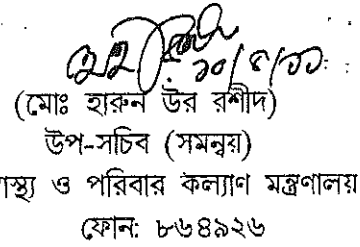 ১০/৪/১১
(মোঃ হারুন উর রশীদ)
উপ-সচিব (সমন্বয়)
াস্থ্য ও পরিবার কল্যাণ মন্ত্রণালয়
ফোন: ৮৬৪৯২৬